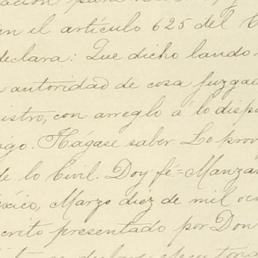 en el artículo 625 del
declara: Que dicho laudo
autoridad de cosa juzga
istro, con arreglo á lo disp
go. Hágase saber. Lo prov
de lo Civil. Doy fé=Manza
éxico, Marzo diez de mil o
crito presentado por Don